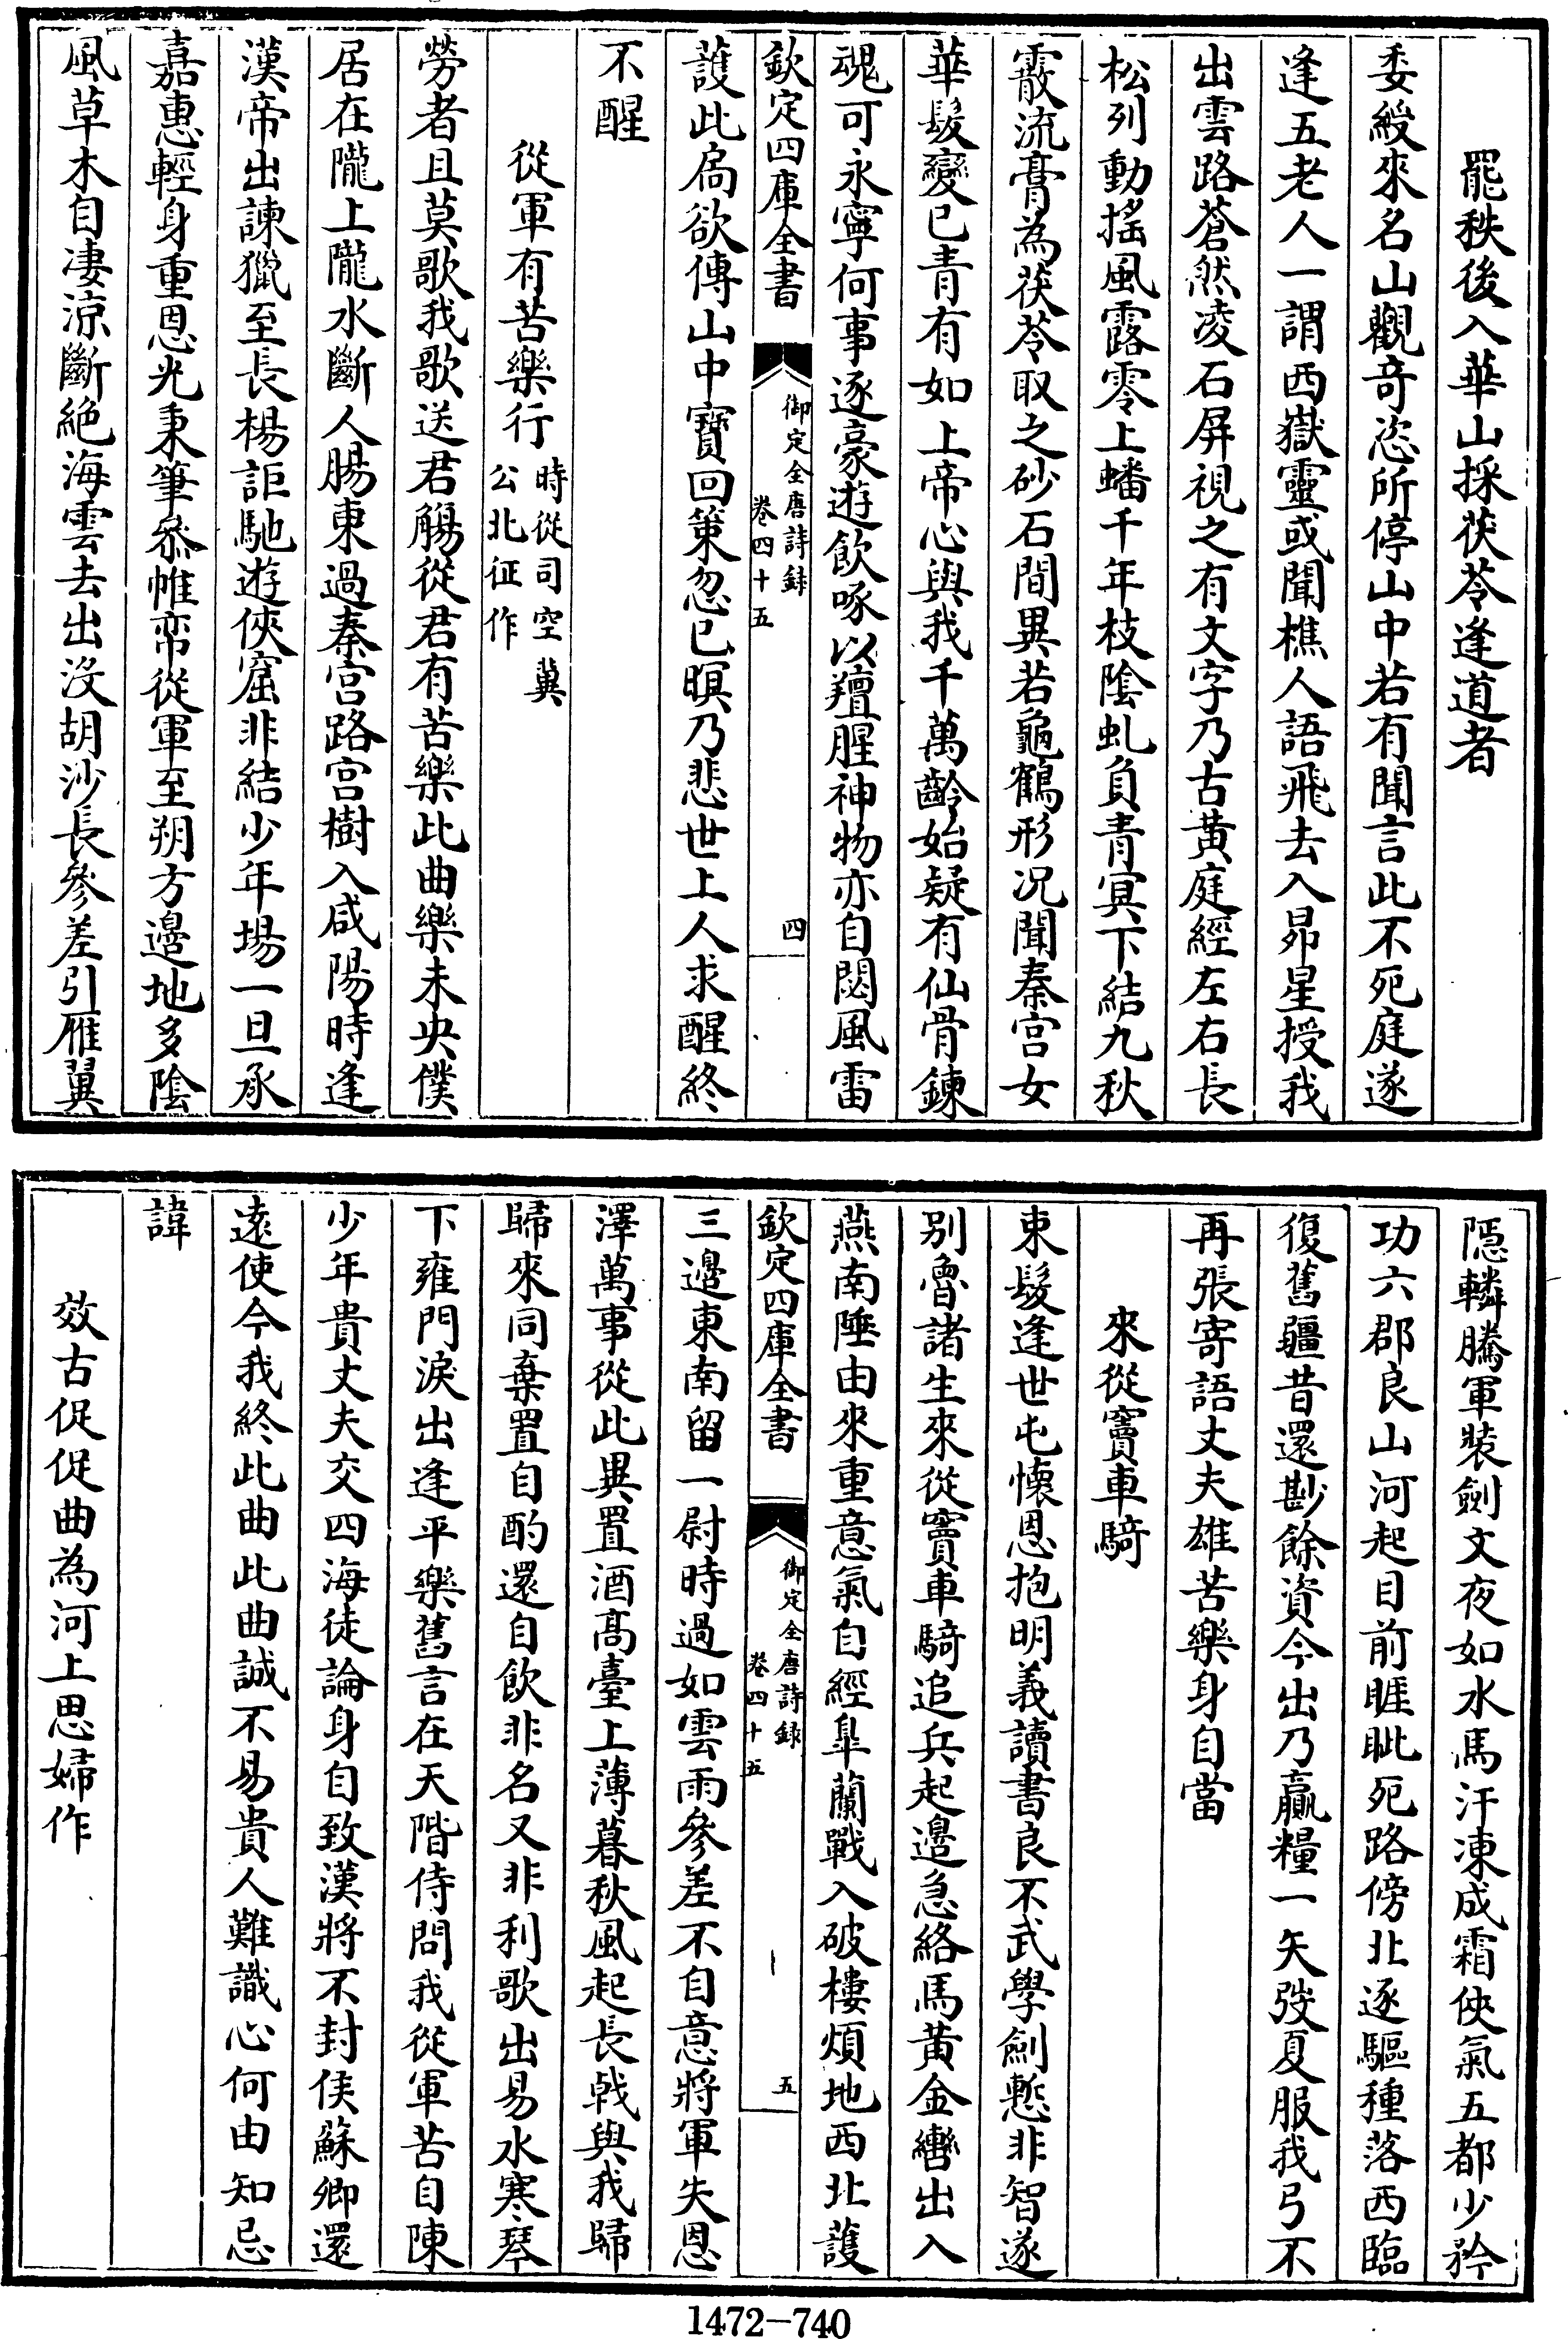 罷秩後入華山採茯苓逢道者
委綬來名山觀竒恣所停山中若有聞言此不死庭遂
逢五老人一謂西嶽靈或聞樵人語飛去入昴星授我
出雲路蒼然凌石屏視之有文字乃古黄庭經左右長
松列動摇風露零上蟠千年枝陰虬負青冥下結九秋
霰流膏為茯苓取之砂石間異若龜鶴形况聞秦宫女
華髮變已青有如上帝心與我千萬齡始疑有仙骨鍊
魂可永寧何事逐豪遊飲啄以羶腥神物亦自閟風雷
欽定四庫全書
御定全唐詩録
卷四十五
四
護此扃欲傳山中寳回策忽已暝乃悲世上人求醒終
不醒
從軍有苦樂行時從司空冀
公北征作
勞者且莫歌我歌送君觴從君有苦樂此曲樂未央僕
居在隴上隴水斷人腸東過秦宫路宫樹入咸陽時逢
漢帝出諫獵至長楊詎馳遊俠窟非結少年場一旦承
嘉惠輕身重恩光秉筆叅帷帟從軍至朔方邉地多陰
風草木自凄涼斷絶海雲去出没胡沙長參差引雁翼
隱轔騰軍裝劍文夜如水馬汗凍成霜俠氣五都少矜
功六郡良山河起目前睚眦死路傍北逐驅種落西臨
復舊疆昔還尠餘資今出乃贏糧一矢弢夏服我弓不
再張寄語丈夫雄苦樂身自當
來從竇車騎
東髮逢世屯懷恩抱明義讀書良不武學劍慙非智遂
别魯諸生來從竇車騎追兵起邉急絡馬黄金轡出入
燕南陲由來重意氣自經臯蘭戰入破樓煩地西北護
欽定四庫全書
御定全唐詩録
卷四十五
五
三邉東南留一尉時過如雲雨參差不自意將軍失恩
澤萬事從此異置酒髙臺上薄暮秋風起長戟與我歸
歸來同棄置自酌還自飲非名又非利歌出易水寒琴
下雍門淚出逢平樂舊言在天階侍問我從軍苦自陳
少年貴丈夫交四海徒論身自致漢將不封侯蘇卿還
遠使今我終此曲此曲誠不易貴人難識心何由知忌
諱
效古促促曲為河上思婦作
1472-740